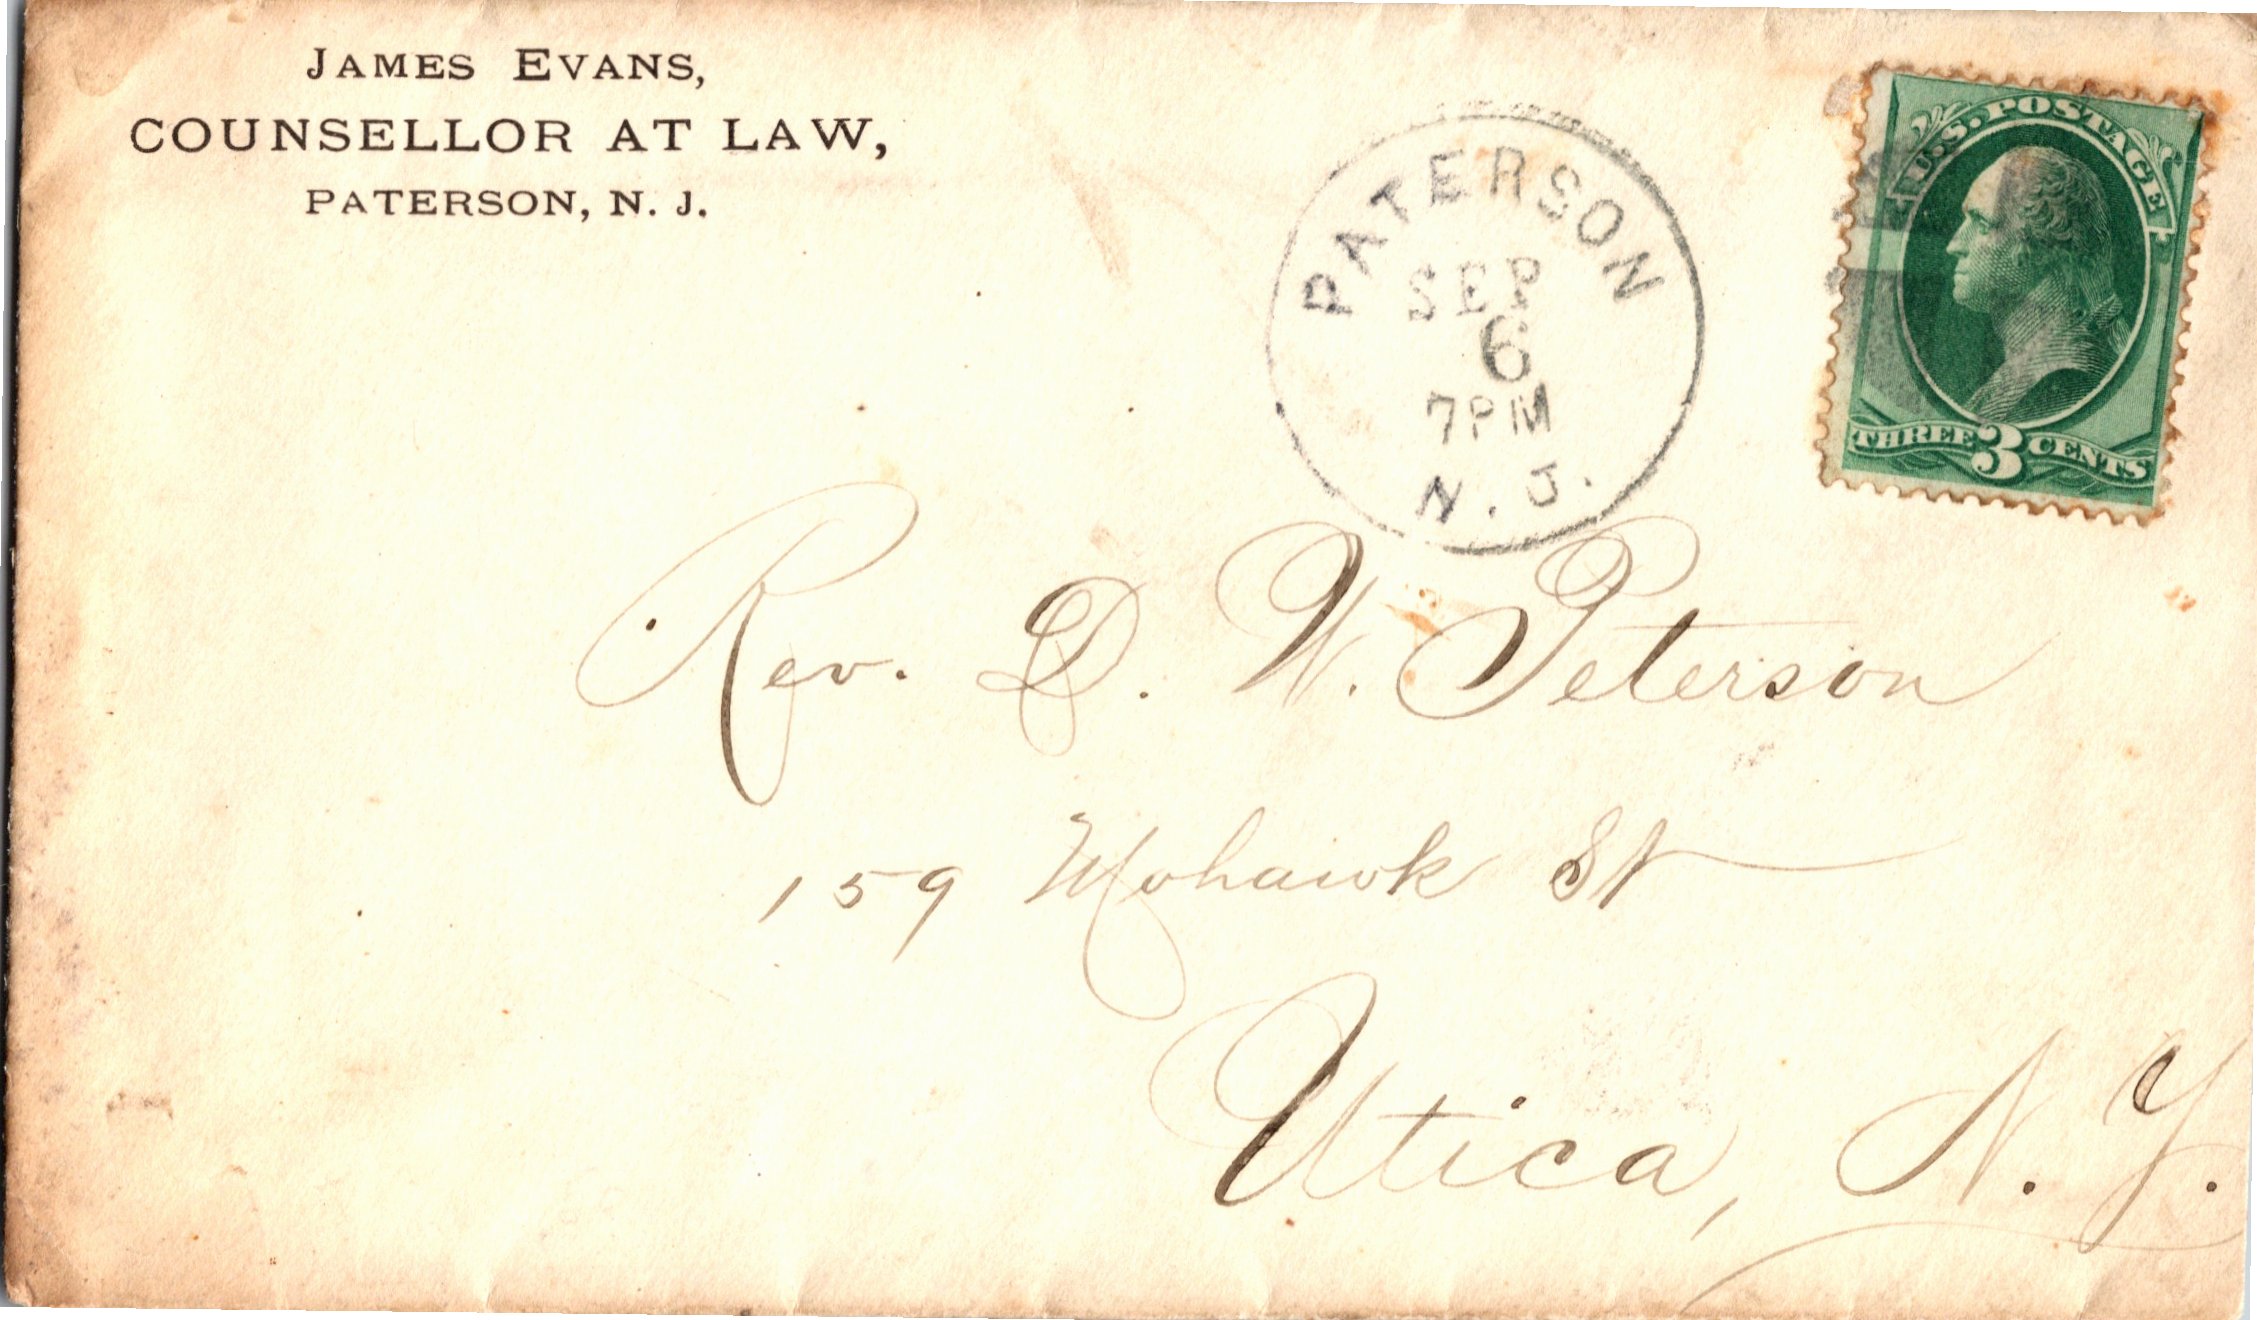 JAMES EVANS,
COUNSELLOR AT LAW,
PATERSON, N. J.
PATERSON
SEP
6
7PM
N. J.
U.S. POSTAGE
THREE 3 CENTS
Rev. D. W. Peterson
159 Mohawk St
Utica, N. Y.